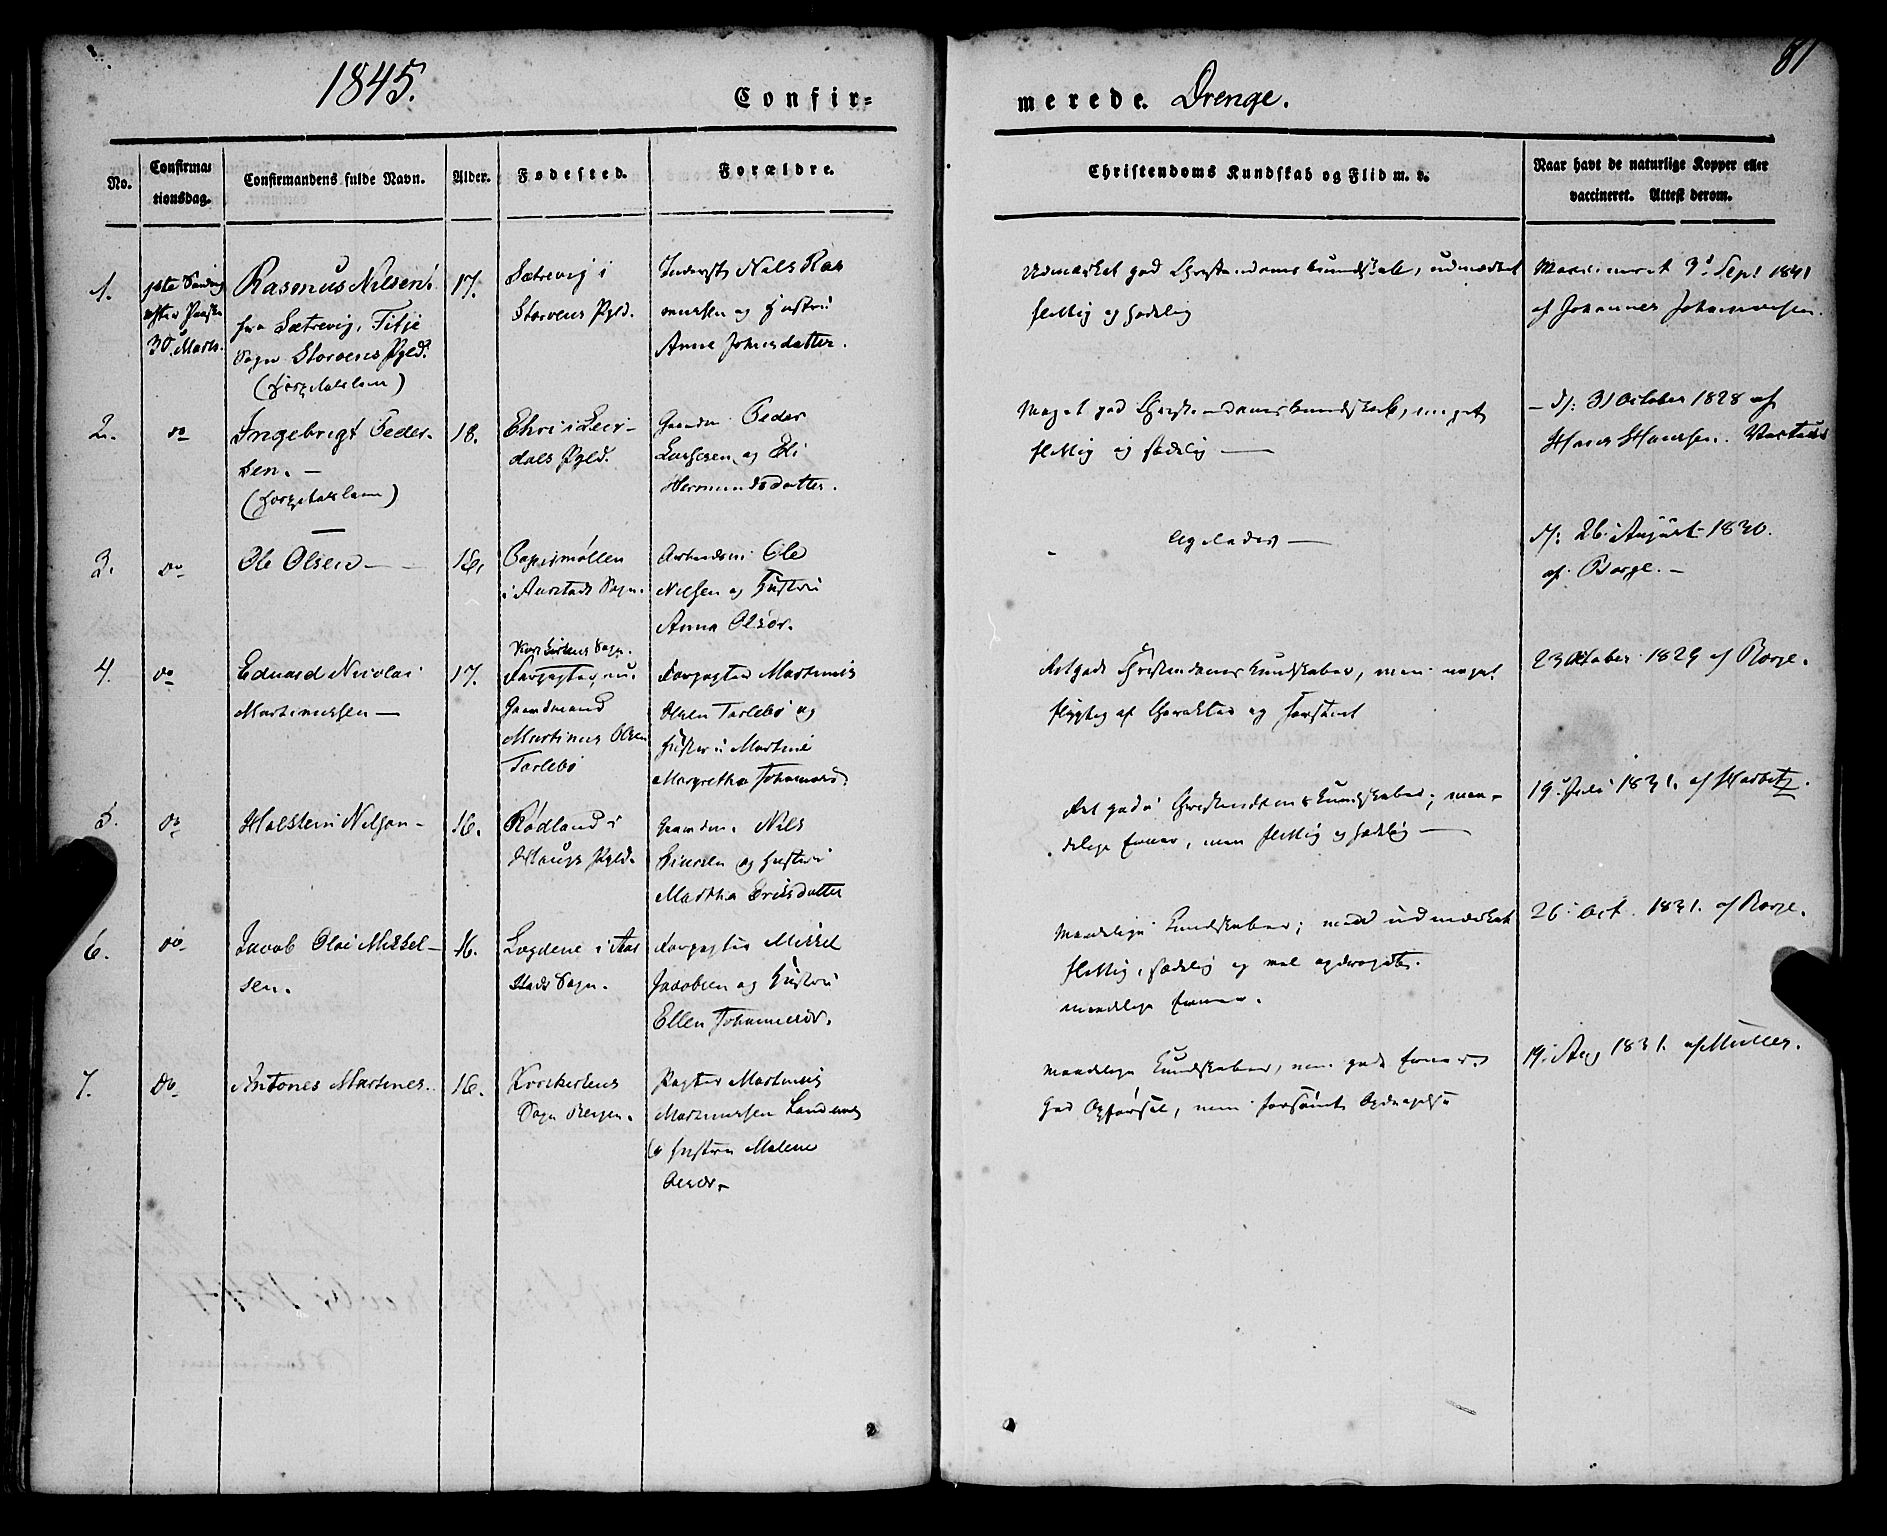 81
1845.
Confir-
merede. Drenge.
No.
Confirma-
tionsdag.
Confirmandens fulde Navn.
Alder.
Fødested.
Forældre.
Christendoms Kundskab og Flid m. v.
Naar havt de naturlige Kopper eller
vaccineret. Attest derom.
1.
1ste Søndag
efter Paaske
30 Marts.
Rasmus Nilsen
fra Sætrevig, Fitje
Sogn Storøens Pgld.
(Hospitalslem)
17.
Sætrevig i
Storøens Pgld.
Inderst Nils Ras
mussen og Hustru
Anne Johnsdatter.
Udmærket god Christendomskundskab, udmærket
flittig og sædelig
Vaccineret 3d Sept 1841
af Johannes Johannessen.
2.
do
Ingebrigt Peder-
sen. —
(Hospitalslem)
18.
i Leir-
dals Pgld.
Gaardm. Peder
Larssen og Eli
Hermundsdatter.
Meget god Christendomskundskab, meget
flittig og sædelig —
— d/: 31 October 1828 af
Hans Hanssen.
3.
do
Ole Olsen —
16.
Papirmøllen
i Aarstads Sogn.
Arbeidsm. Ole
Nilsen og Hustru
Anna Olsdr.
ligeledes —
d/: 26 August 1830.
af Borge. —
4.
do
Eduard Nicolai
Martinussen —
17.
Korskirkens Sogn.
Forpagter, nu
Gaardmand
Martinus Olsen
Tarlebø
Forpagter Martinus
Olsen Tarlebø og
Hustru Martine
Margretha Johannesd.
Ret gode Christendomskundskaber, men noget
flygtig af Charakter og Forstand
23 October 1829 af Borge.
5.
do
Halstein Nilsen —
16.
Rødland i
Hougs Pgld.
Gaardm. Nils
og Hustru
Martha Eriksdatter
Ret gode Christendomskundskaber; maa-
delige Evner, men flittig og sædelig —
19 Juli 1831. af
6.
do
Jacob Olai Mikkel-
sen.
16.
Løgdene i Aar
stads Sogn.
Forpagter Mikkel
Jacobsen og Hustru
Ellen Johannesdr.
Maadelige Kundskaber; med udmærket
flittig, sædelig og vel opdragen.
maadelige Evner.
26 Oct. 1831. af Borge.
7.
do
Antones Martines.
16.
Korskirkens
Sogn Bergen.
Pagter Martinus
Martinussen
og Hustru Malene
Olsdr. —
Maadelige Kundskaber, men gode Evner
God Opførsel, men forsømt Opdragelse
19. Aug 1831. af Müller.